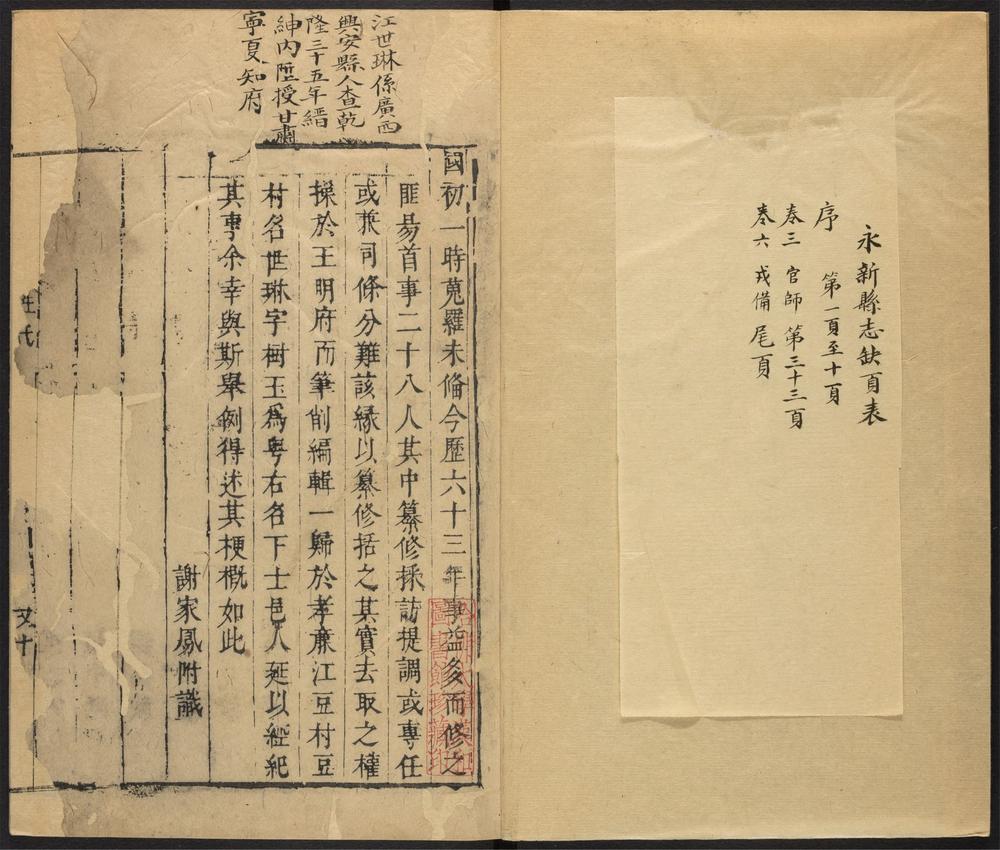 永新縣志缺頁表
序 第一頁至十頁
卷三 官師 第三十三頁
卷六 戎備 尾頁
江世琳係廣西
興安縣人查乾
隆三十五年縉
紳內陞授甘肅
寧夏知府
國初一時蒐羅未備今歷六十三年事益多而修之
匪易首事二十八人其中纂修採訪提調或專任
或兼司條分難該緣以纂修括之其實去取之權
操於王明府而筆削編輯一歸於孝廉江豆村豆
村名世琳字樹玉爲粤右名下士邑人延以經紀
其事余幸與斯舉例得述其梗概如此
謝家鳳附識
又十